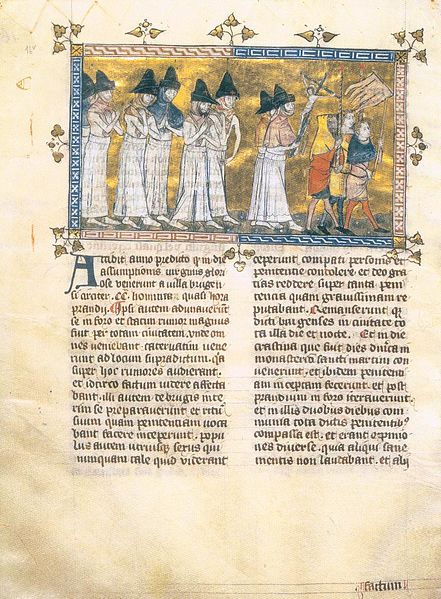 Accidit anno predicto q in die
assumptionis uirginis glorio
se venerunt a uilla brugen
si circiter .CC. homines quasi hora
prandij. Ipsi autem adunauerunt
se in foro et statim rumor magnus
fuit per totam ciuitatem. unde om
nes veniebant cateruatim vene
runt ad locum supradictum. qa
super hoc rumores audierant.
et idcirco factum videre affecta
bant. illi autem de brugis inte
rim se preparauerunt et ritum
suum quam penitentiam voca
bant facere inceperunt. popu
lus autem utriusque sexus qui
nunquam tale quid viderant
ceperunt compati personis et
penitentie condolere et deo gra
tias reddere super tanta peni
tentia quam grauissimam re
putabant. Remanserunt
dicti burgenses in ciuitate to
ta illa die et nocte. Et in die
crastina que fuit dies dnica in
monasterio sancti martini con
uenerunt. et ibidem penitenti
am inceptam fecerunt. et post
prandium in foro iterauerunt.
et in illis duobus diebus com
munitas tota dictis penitentibus
compassa est. et erant opinio
nes diuerse. quia aliqui sane
mentis non laudabant. et ali
factum